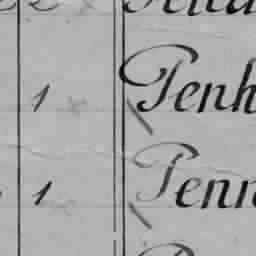 1 Penh
1 Penn